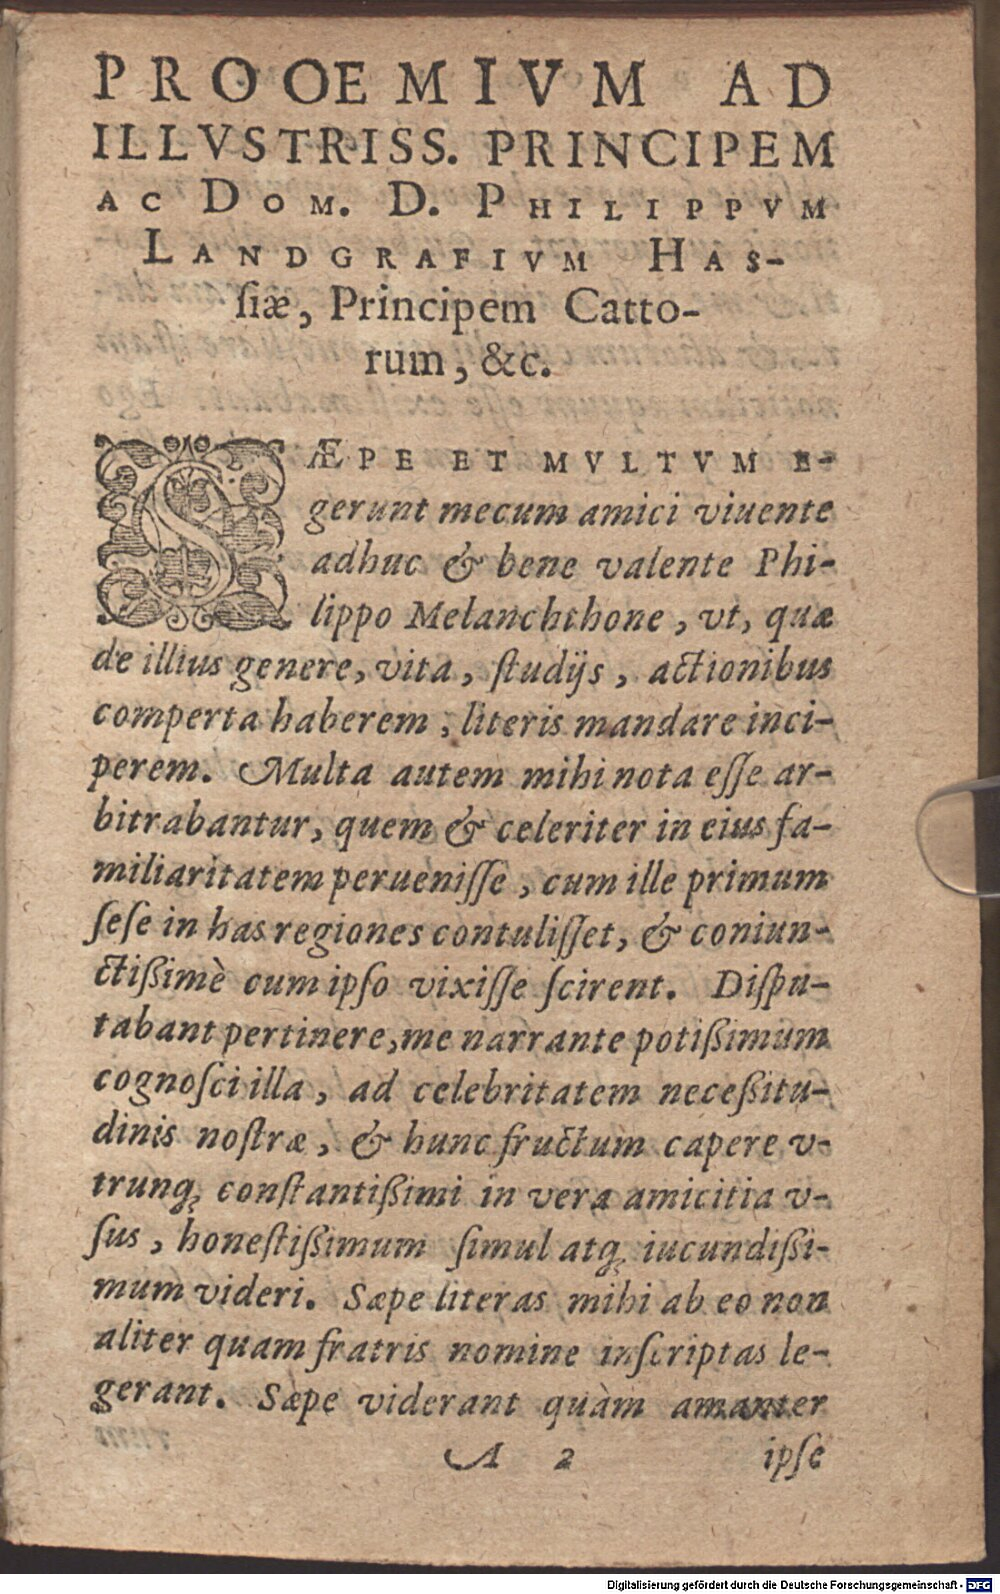 PROOEMIVM AD
ILLVSTRISS. PRINCIPEM
AC DOM. D. PHILIPPVM
LANDGRAFIVM HAS-
ſiæ, Principem Catto-
rum, &c.
SÆPE ET MVLTVM E-
gerunt mecum amici viuente
adhuc & bene valente Phi-
lippo Melanchthone, vt, quæ
de illius genere, vita, ſtudijs, actionibus
comperta haberem, literis mandare inci-
perem. Multa autem mihi nota eſſe ar-
bitrabantur, quem & celeriter in eius fa-
miliaritatem perueniſſe, cum ille primum
ſeſe in has regiones contuliſſet, & coniun-
ctißimè cum ipſo vixiſſe ſcirent. Diſpu-
tabant pertinere, me narrante potißimum
cognoſci illa, ad celebritatem neceßitu-
dinis noſtræ, & hunc fructum capere v-
trunq; conſtantißimi in vera amicitia v-
ſus, honeſtißimum ſimul atq; iucundißi-
mum videri. Sæpe literas mihi ab eo non
aliter quam fratris nomine inſcriptas le-
gerant. Sæpe viderant quàm amanter
A 2 ipſe
Digitalisierung gefördert durch die Deutsche Forschungsgemeinschaft - DFG